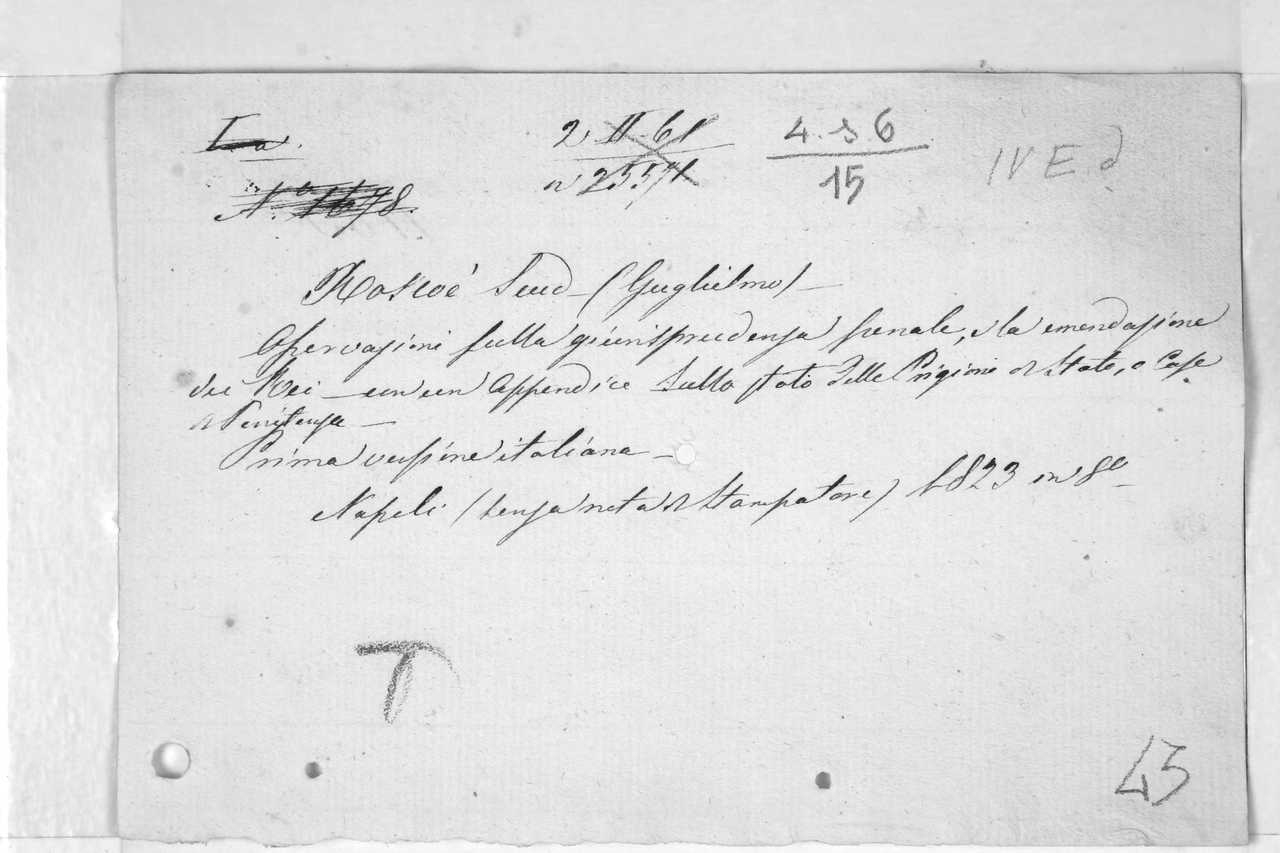 N.º 1678.
2 II 61
n 2557
4. s. 6
15
IV E. d
Roscoé (Guglielmo)
Osservazioni sulla giurisprudenza penale, e la emendazione
dei Rei con un appendice sullo stato delle Prigioni di Stato, o Case
di Penitenza
Prima versione italiana
Napoli (senza nota di Stampatore) 1823 in 8º
T
43